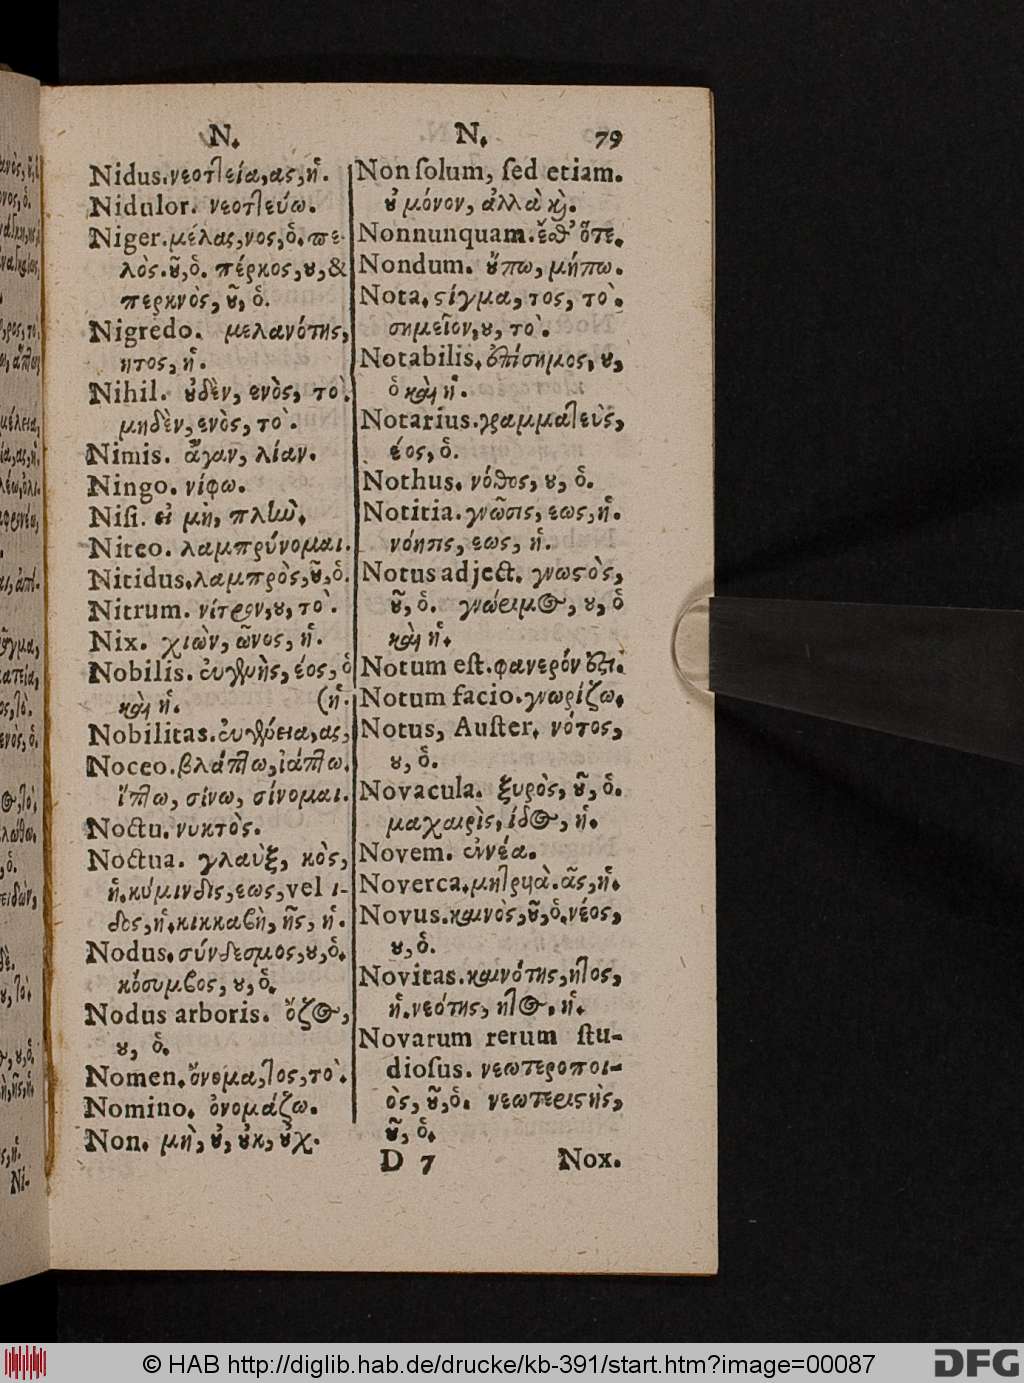 N.
Nidus. νεοττεία, ας, ἡ.
Nidulor. νεοττεύω.
Niger. μέλας, νος, ὁ. πε-
λὸς. ȣ͂, ὁ. πέρκος, ȣ, &
περκνὸς, ȣ͂, ὁ.
Nigredo. μελανότης,
ητος, ἡ.
Nihil. ȣ̓δὲν, ενὸς, τὸ.
μηδὲν, ενὸς, τὸ.
Nimis. ἄγαν, λίαν.
Ningo. νίφω.
Niſi. εἰ μὴ, πλὴν.
Niteo. λαμπρύνομαι.
Nitidus. λαμπρὸς, ȣ͂, ὁ.
Nitrum. νίτρον, ȣ, τὸ.
Nix. χιὼν, ῶνος, ἡ.
Nobilis. ἐυγενὴς, έος, ὁ
καὶ ἡ. (ἡ.
Nobilitas. ἐυγένεια, ας,
Noceo. βλάπτω, ἰάπτω.
ἵπτω, σίνω, σίνομαι.
Noctu. νυκτὸς.
Noctua. γλαὺξ, κὸς,
ἡ. κύμινδις, εως, vel ι-
δος, ἡ. κικκαβὴ, ῆς, ἡ.
Nodus. σύνδεσμος, ȣ, ὁ.
κόσυμβος, ȣ, ὁ.
Nodus arboris. ὄζος,
ȣ, ὁ.
Nomen. ὄνομα, τος, τὸ.
Nomino. ὀνομάζω.
Non. μὴ, ȣ̓, ȣ̓κ, ȣ̓χ.
N. 79
Non ſolum, ſed etiam.
ȣ̓ μόνον, ἀλλὰ κ̀.
Nonnunquam. ἔϑ' ὅτε.
Nondum. ȣ̓́πω, μήπω.
Nota. ϛίγμα, τος, τὸ.
σημεῖον, ȣ, τὸ.
Notabilis. ἐπίσημος, ȣ,
ὁ καὶ ἡ.
Notarius. γραμματεὺς,
έος, ὁ.
Nothus. νόϑος, ȣ, ὁ.
Notitia. γνῶσις, εως, ἡ.
νόησις, εως, ἡ.
Notus adject. γνωϛὸς,
ȣ͂, ὁ. γνώριμος, ȣ, ὁ
καὶ ἡ.
Notum eſt. φανερόν ἐϛι.
Notum facio. γνωρίζω.
Notus, Auſter. νότος,
ȣ, ὁ.
Novacula. ξυρὸς, ȣ͂, ὁ.
μαχαιρὶς, ίδος, ἡ.
Novem. ἐννέα.
Noverca. μητρυιὰ. ᾶς, ἡ.
Novus. καινὸς, ȣ͂, ὁ. νέος,
ȣ, ὁ.
Novitas. καινότης, ητος,
ἡ. νεότης, ητος, ἡ.
Novarum rerum ſtu-
dioſus. νεωτεροποι-
ὸς, ȣ͂, ὁ. νεωτεριϛὴς,
ȣ͂, ὁ.
D 7 Nox.
Ni-
© HAB http://diglib.hab.de/drucke/kb-391/start.htm?image=00087
DFG